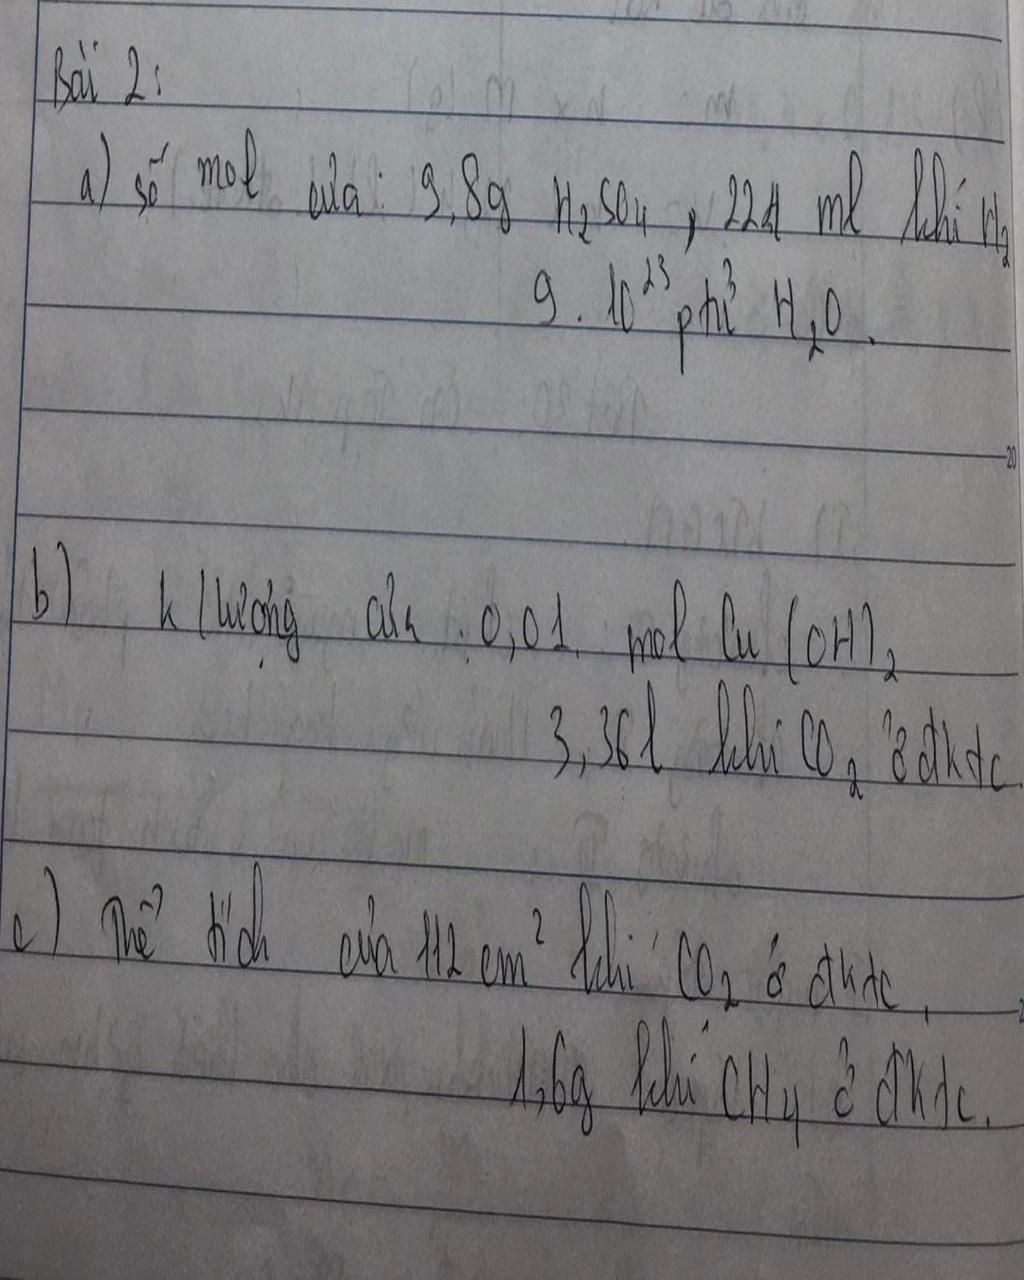 Bài 2:
a) số mol của: 9,8g H₂SO₄, 224 ml khí H₂
9 . 10²³ ptử H₂O.
20
b) k/lượng của 0,01 mol Cu(OH)₂
3,36l khí CO₂ ở đktc
c) Thể tích của 112 cm² khí CO₂ ở đktc,
1,6g khí CH₄ ở đktc.